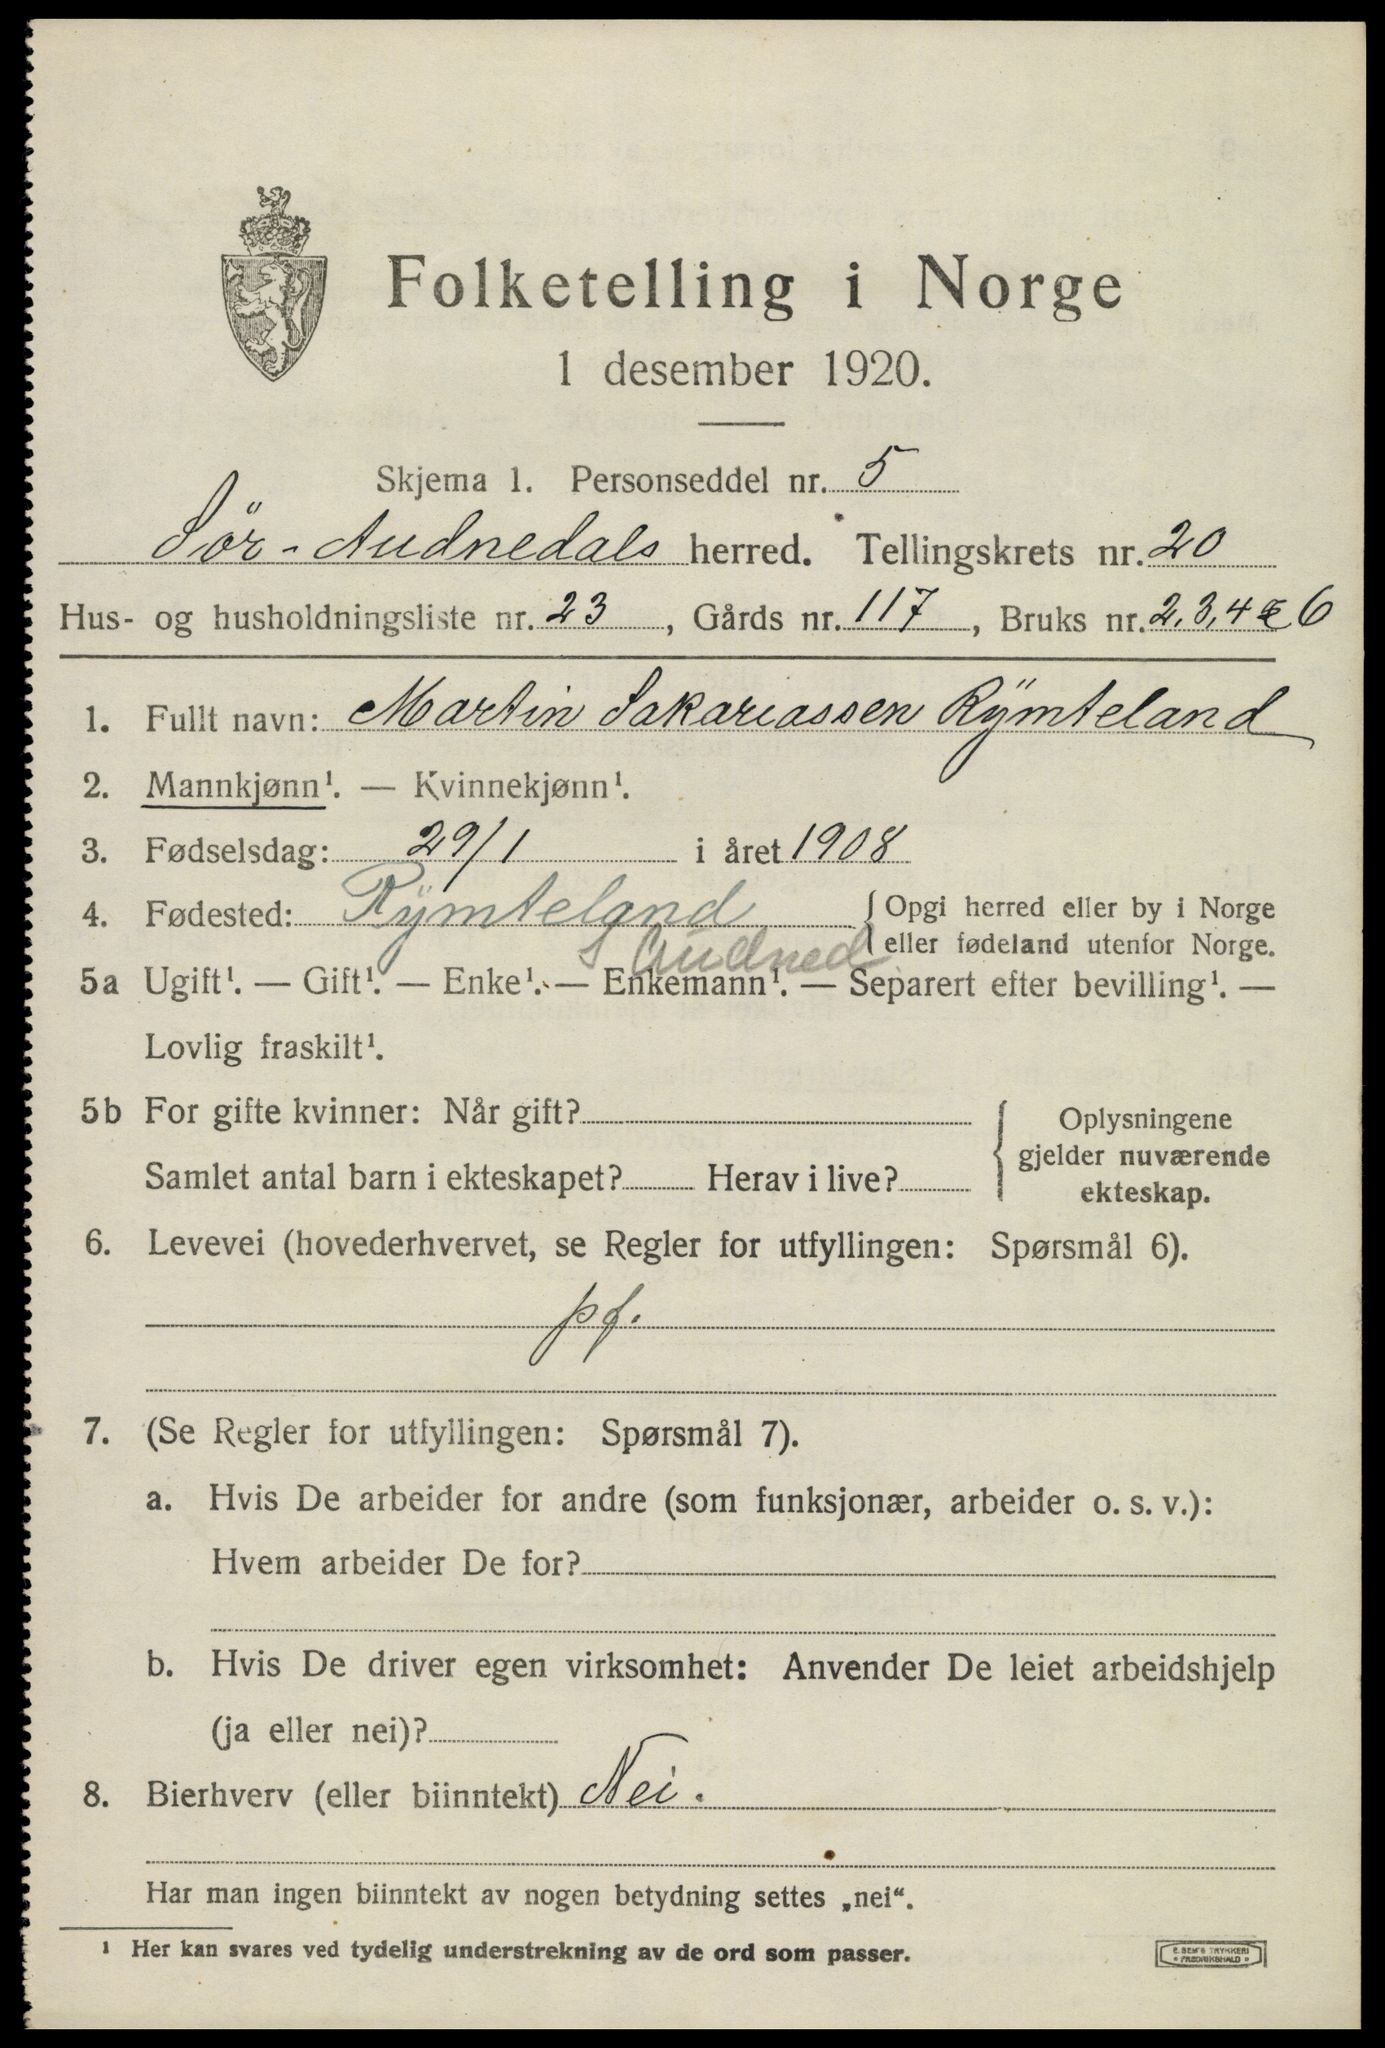 Folketelling i Norge
1 desember 1920.
Skjema 1. Personseddel nr. 5
Sör-Audnedals herred. Tellingskrets nr. 20
Hus- og husholdningsliste nr. 23, Gårds nr. 117, Bruks nr. 2,3,4 & 6
1. Fullt navn: Martin Sakariassen Rÿmteland
2. Mannkjønn¹. — Kvinnekjønn¹.
3. Fødselsdag: 29/1 i året 1908
4. Fødested: Rÿmteland { Opgi herred eller by i Norge
eller fødeland utenfor Norge.
S Audned
5a Ugift¹. — Gift¹. — Enke¹. — Enkemann¹. — Separert efter bevilling¹. —
Lovlig fraskilt¹.
5b For gifte kvinner: Når gift? { Oplysningene
gjelder nuværende
Samlet antal barn i ekteskapet? Herav i live? ekteskap.
6. Levevei (hovederhvervet, se Regler for utfyllingen: Spørsmål 6).
pf.
7. (Se Regler for utfyllingen: Spørsmål 7).
a. Hvis De arbeider for andre (som funksjonær, arbeider o. s. v.):
Hvem arbeider De for?
b. Hvis De driver egen virksomhet: Anvender De leiet arbeidshjelp
(ja eller nei)?
8. Bierhverv (eller biinntekt) Nei.
Har man ingen biinntekt av nogen betydning settes „nei“.
¹ Her kan svares ved tydelig understrekning av de ord som passer.
E. SEM'S TRYKKERI
FREDRIKSHALD